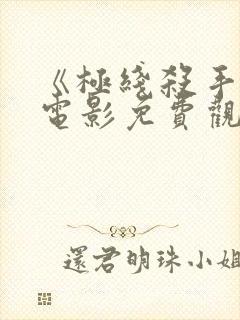 《極綫殺手
電影免費觀
還君明珠小姐